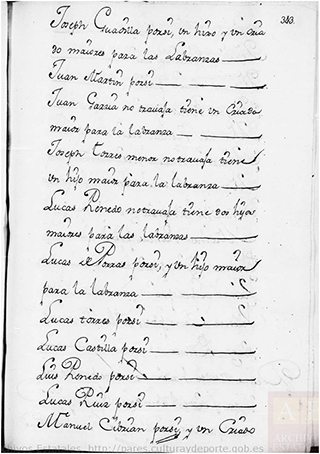 383.
Joseph Guadilla porsi, un hijo y un cria
do maiores para las Labranzas
Juan Martin porsi
Juan Garcia no travaja tiene un Criado
maior para la labranza
Joseph torres menor no travaja tiene
un hijo maior para la labranza
Lucas Renedo no travaja tiene dos hijos
maiores para las labranzas
Lucas de Porras porsi, y un hijo maior
para la labranza
Lucas torres porsi
Lucas Castilla porsi
Luis Renedo porsi
Lucas Ruiz porsi
Manuel Cibrian porsi, y un Criado
Archivos Estatales, http://pares.culturaydeporte.gob.es